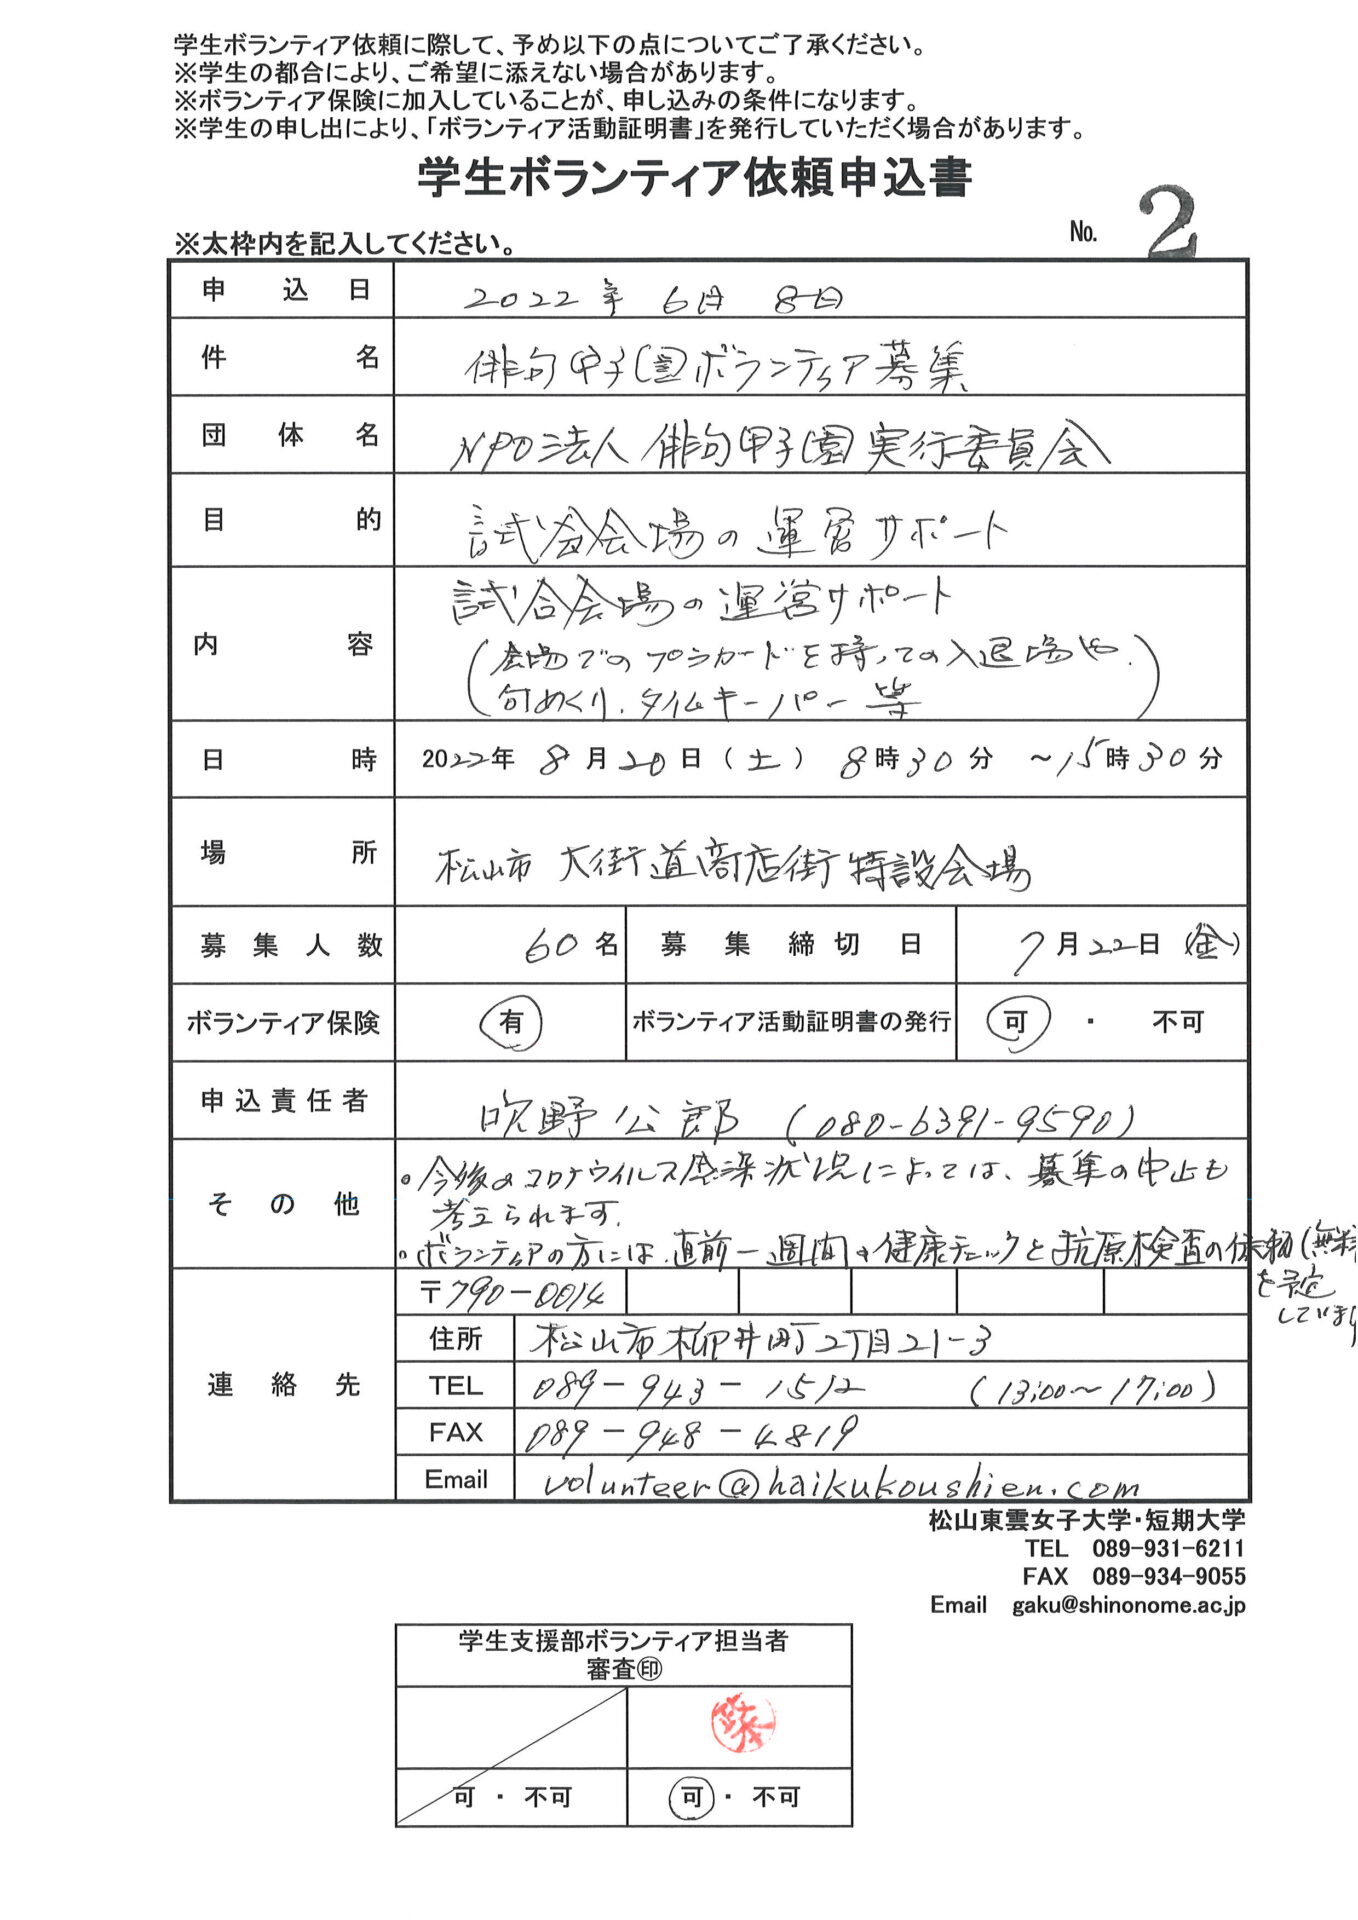 学生ボランティア依頼に際して、予め以下の点についてご了承ください。
※学生の都合により、ご希望に添えない場合があります。
※ボランティア保険に加入していることが、申し込みの条件になります。
※学生の申し出により、「ボランティア活動証明書」を発行していただく場合があります。
学生ボランティア依頼申込書
※太枠内を記入してください。 No. 2
申込日 2022年 6月 8日
件名 俳句甲子園ボランティア募集
団体名 NPO法人 俳句甲子園実行委員会
目的 試合会場の運営サポート
内容 試合会場の運営サポート
(会場でのプラカードを持っての入退場や、
句めくり、タイムキーパー等)
日時 2022年 8月20日(土) 8時30分 ~15時30分
場所 松山市 大街道商店街特設会場
募集人数 60名 募集締切日 7月22日(金)
ボランティア保険 有 ボランティア活動証明書の発行 可・不可
申込責任者 吹野公郎 (080-6391-9590)
その他 。今後のコロナウイルス感染状況によっては、募集の中止も
考えられます。
。ボランティアの方には、直前一週間の健康チェックと抗原検査の依頼(無料
を予定
しています
連絡先 〒790-0014
住所 松山市柳井町2丁目21-3
TEL 089-943-1512 (13:00~17:00)
FAX 089-948-4819
Email volunteer@haikukoushien.com
松山東雲女子大学・短期大学
TEL 089-931-6211
FAX 089-934-9055
Email gaku@shinonome.ac.jp
学生支援部ボランティア担当者
審査㊞
可・不可 可・不可